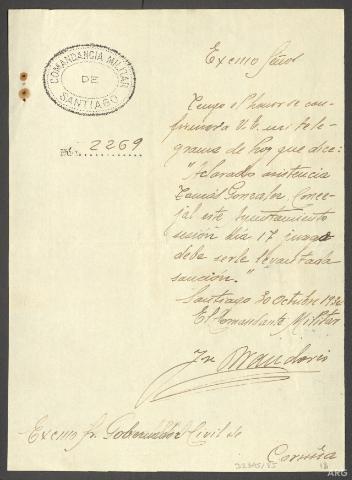 COMANDANCIA MILITAR
DE
SANTIAGO
Nº. 2269
Excmo Señor
Tengo el honor de con-
firmar a V.E. mi tele-
grama de hoy que dice:
"Aclarado asistencia
Tomás Gonzalez Conce-
jal este Ayuntamiento
sesión día 17
debe serle levantada
sanción."
Santiago 20 Octubre 1936
El Comandante Militar
Excmo Sr. Gobernador Civil de
Coruña
ARG